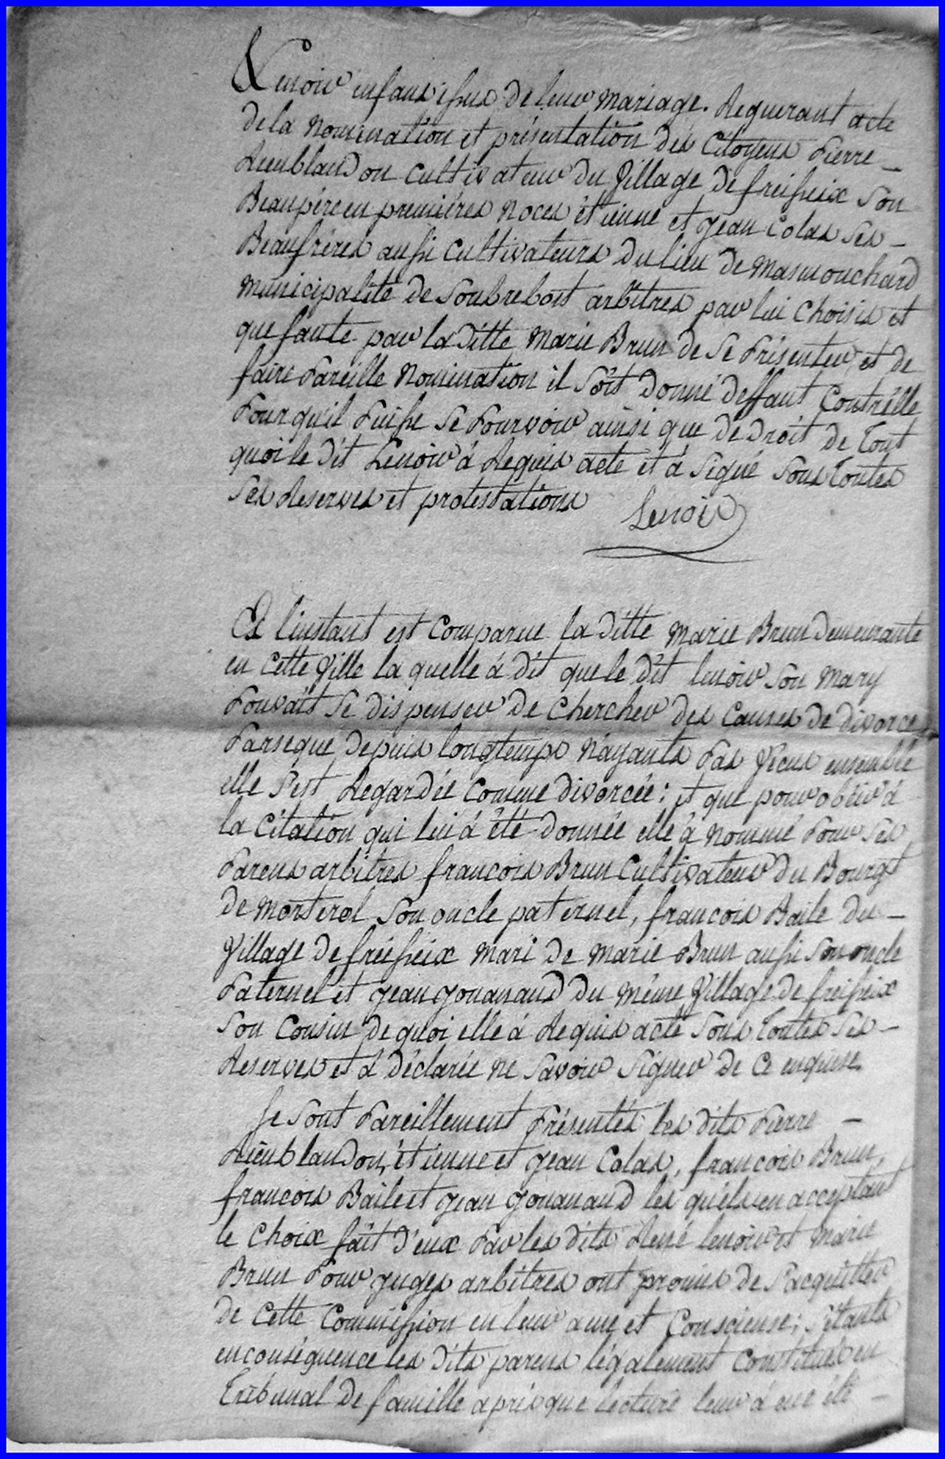 Lenoir enfans issus de leur mariage. Requerant acte
de la nomination et présentation des Citoyens Pierre
Rieublandon cultivateur du Village de freisseix Son
Beaupère en premières noces étienne et jean Colas ses
Beaufrères aussi Cultivateurs du lieu de Masmouchard
municipalité de Soubrebost arbitres par lui Choisis et
que faute par la ditte Marie Brun de se Présenter et de
faire Pareille Nomination il soit donné deffaut Contrelle
Pour qu'il Puisse se Pourvoir ainsi que de Droit de Tout
quoi le dit Lenoir à Requis acte et à Signé Sous Toutes
Ses Reserves et protestations Lenoir
Et linstant est Comparue la ditte Marie Brun demeurante
en cette Ville la quelle à dit que le dit lenoir Son Mary
Pouvait Se dispenser de Chercher des Causes de divorce
Parseque depuis longtemps N'ayants Pas Vécus ensemble
elle s'est Regardée Comme divorcée; et que pour obéir à
la Citation qui lui à été donnée elle à nommé Pour Ses
Parens arbitres francois Brun Cultivateur du Bourgt
de Monterol Son oncle paternel, francois Baile du
Village de freisseix Mari de Marie Brun aussi Son oncle
Paternel et jean jouanaud du même Village de freisseix
Son Cousin de quoi elle à Requis acte Sous Toutes Ses
Reserves et à déclarée ne Savoir Signer de Ce enquise
Se Sont Pareillement Présentés les dits Pierre
Rieublandon, étienne et jean Colas, francois Brun,
francois Baile et jean jouanaud les quels en acceptant
le Choix fait d'eux Par les dits René lenoir et Marie
Brun Pour juges arbitres ont promis de S'acquitter
de Cette Commission en leur ame et Consciense; S'étants
en conséquence les dits parens légalement Constitués en
Tribunal de famille après que lecture leur à eue été